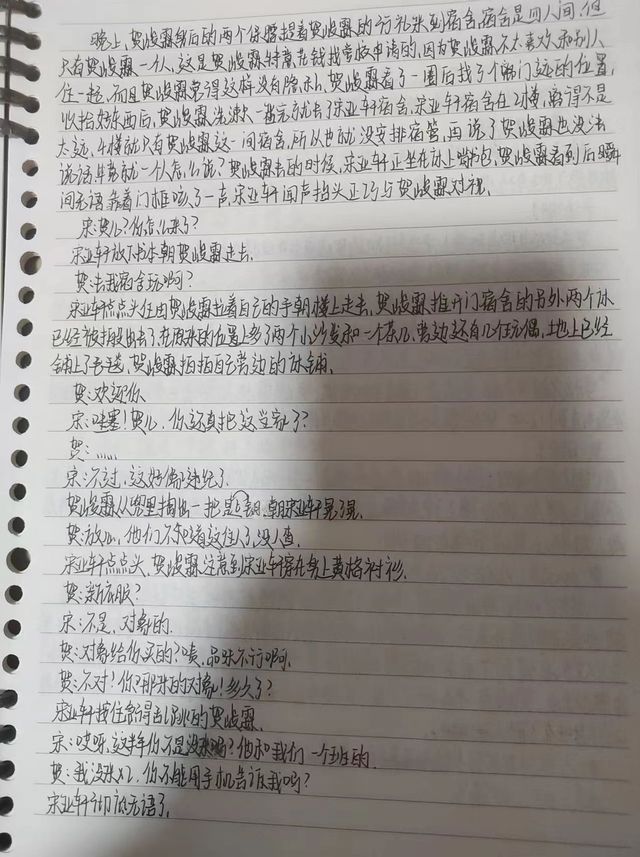 晚上,贺峻霖身后的两个保镖提着贺峻霖的行礼来到宿舍,宿舍是四人间,但
只有贺峻霖一个人,这是贺峻霖特意花钱找学校申请的,因为贺峻霖不太喜欢和别人
住一起,而且贺峻霖觉得这样没有隐私,贺峻霖看了一圈后找了个离门远的位置,
收拾好东西后,贺峻霖洗漱一番完就去了宋亚轩宿舍,宋亚轩宿舍在2楼,离得不是
太远,4楼就只有贺峻霖这一间宿舍,所以也就没安排宿管,再说了贺峻霖也没法
说话,毕竟就一个人怎么说?贺峻霖去的时候,宋亚轩正坐在床上啃书,贺峻霖看到后瞬
间无语,靠着门框咳了一声,宋亚轩闻声抬头正巧与贺峻霖对视.
宋:贺儿?你怎么来了?
宋亚轩放下书本朝贺峻霖走去.
贺:去我宿舍玩啊?
宋亚轩点点头任由贺峻霖拉着自己的手朝楼上走去,贺峻霖推开门宿舍的另外两个床
已经被搬出去了,在原来的位置上多了两个小沙发和一个茶几,旁边还有几个玩偶,土地上已经
铺上了毛毯,贺峻霖拍拍自己旁边的床铺.
贺:欢迎你
宋:哇塞!贺儿,你还真把这当家了?
贺:……
宋:不过,这好像违纪了.
贺峻霖从兜里掏出一把钥匙,朝宋亚轩晃了晃.
贺:放心,他们不知道这住人了,没人查.
宋亚轩点点头,贺峻霖注意到宋亚轩穿在身上黄格衬衫.
贺:新衣服?
宋:不是,对象的.
贺:对象给你买的?啧,品味不行啊.
贺:不对!你哪来的对象!多久了?
宋亚轩按住的贺峻霖.
宋:哎呀,这半年你不是没来吗?他和我们一个班的.
贺:我没来,你不能用手机告诉我吗?
宋亚轩彻底无语了.